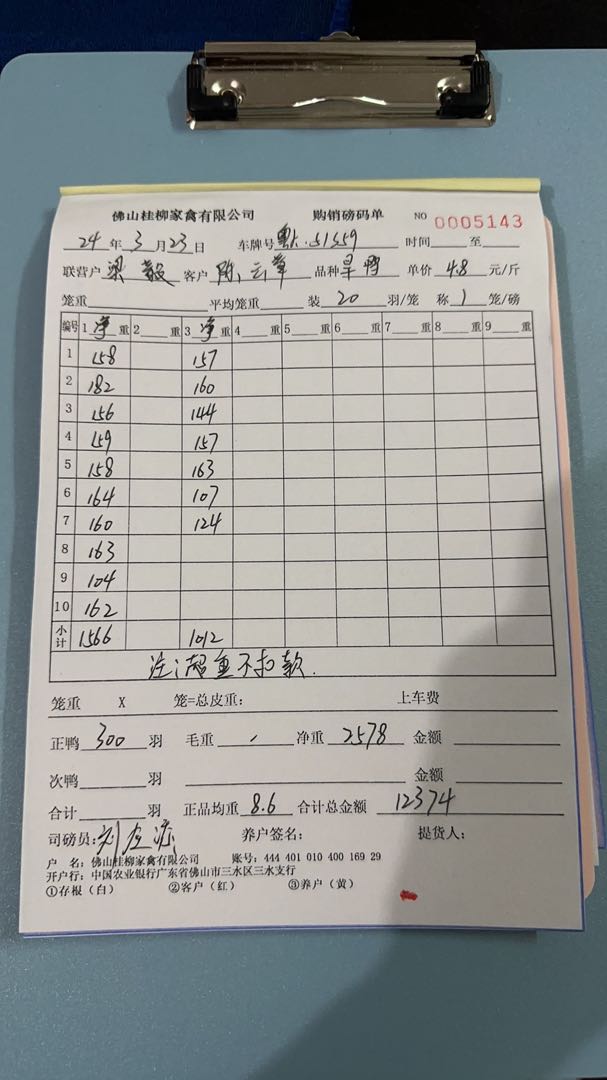 佛山桂柳家禽有限公司 购销磅码单 NO 0005143
24年3月23日 车牌号 时间 至
联营户 梁毅 客户 陈云华 品种 旱鸭 单价 4.8 元/斤
笼重 平均笼重 装 20 羽/笼 称 1 笼/磅
编号 1 净重 2 重 3 净重 4 重 5 重 6 重 7 重 8 重 9 重
1 158 157
2 182 160
3 156 144
4 159 157
5 158 163
6 164 107
7 160 124
8 163
9 104
10 162
小计 1566 1012
注:超重不扣款.
笼重 X 笼=总皮重: 上车费
正鸭 300 羽 毛重 净重 2578 金额
次鸭 羽 金额
合计 羽 正品均重 8.6 合计总金额 12374
司磅员: 养户签名: 提货人:
户 名:佛山桂柳家禽有限公司 账号:444 401 010 400 169 29
开户行:中国农业银行广东省佛山市三水区三水支行
①存根(白) ②客户(红) ③养户(黄)